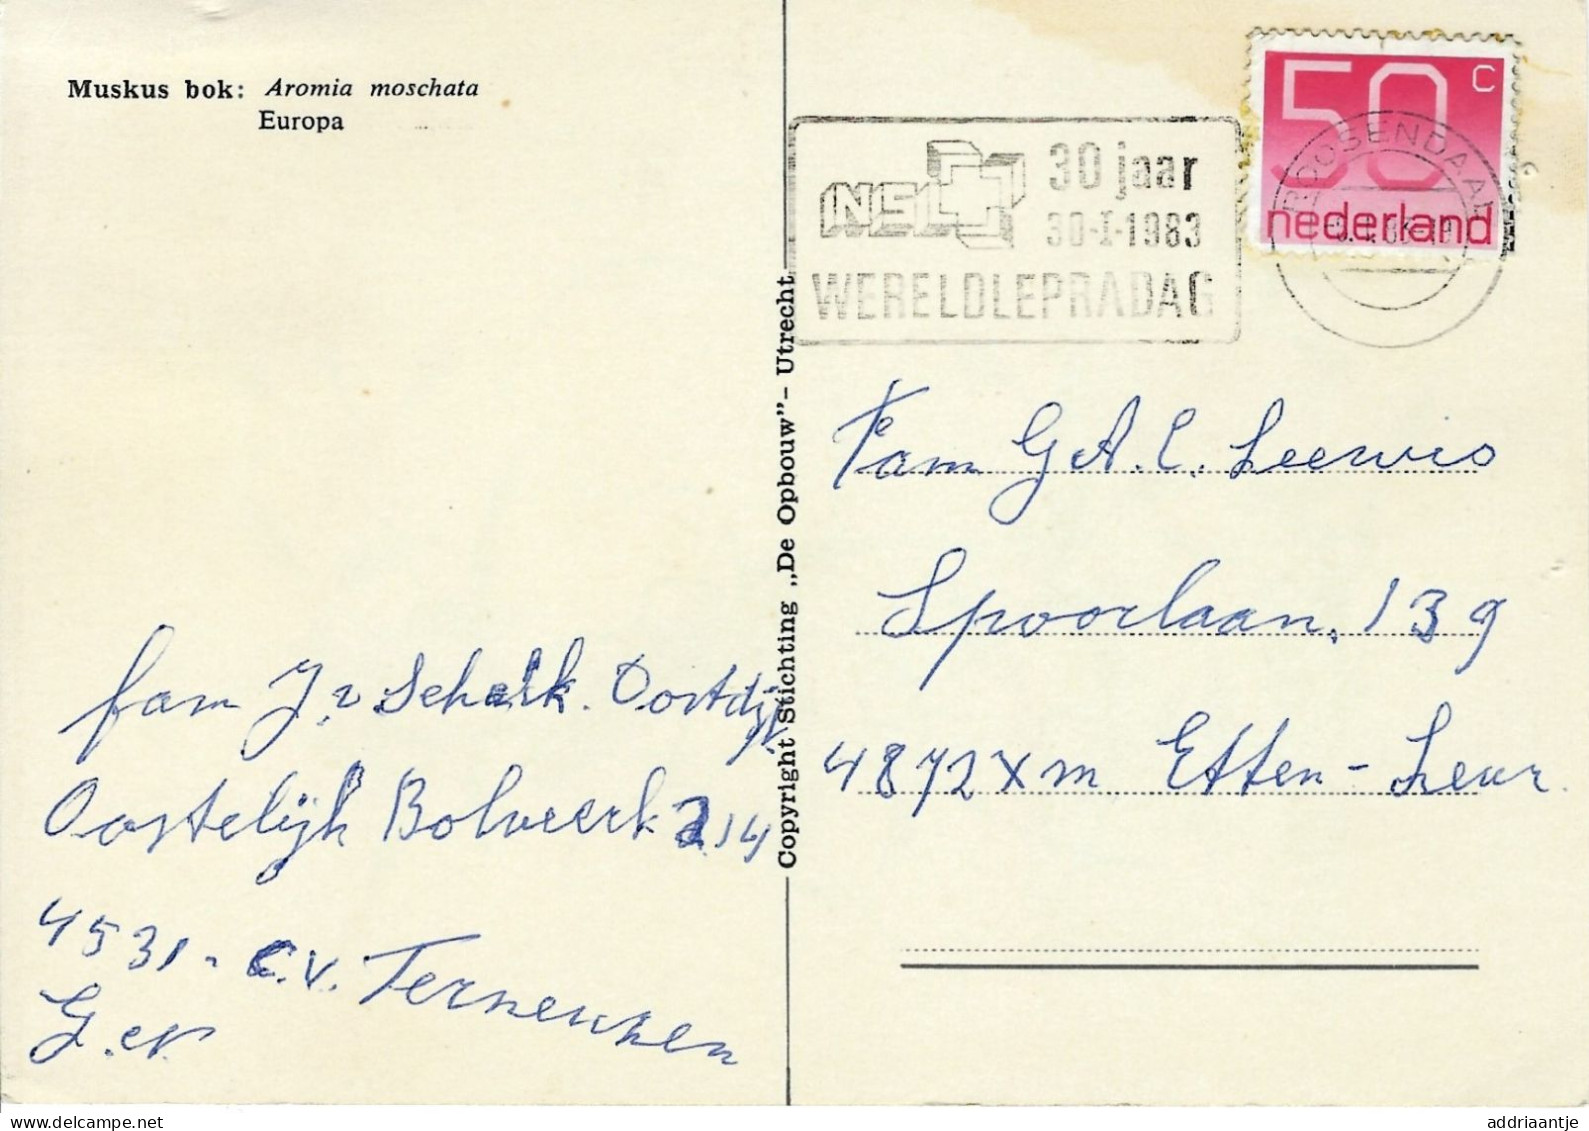 Muskus bok: Aromia moschata
Europa
50 c
nederland
ROOSENDAAL
NSL
30 jaar
30-I-1983
WERELDLEPRADAG
Copyright Stichting „De Opbouw”- Utrecht
Fam G A. C. Leewis
Spoorlaan, 139
4872 Xm Etten-Leur.
fam J. v Schalk. Oostdijk
Oostelijk Bolweerk 214
4531 - C.V. Terneuzen
G. en
addriaantje